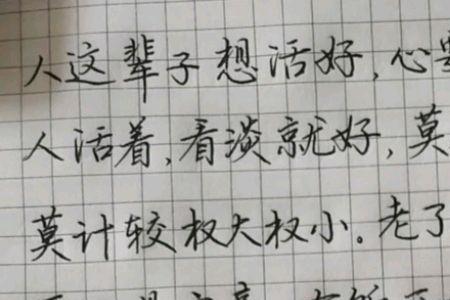 人这辈子想活好,心
人活着,看淡就好,莫
莫计较权大权小。老了